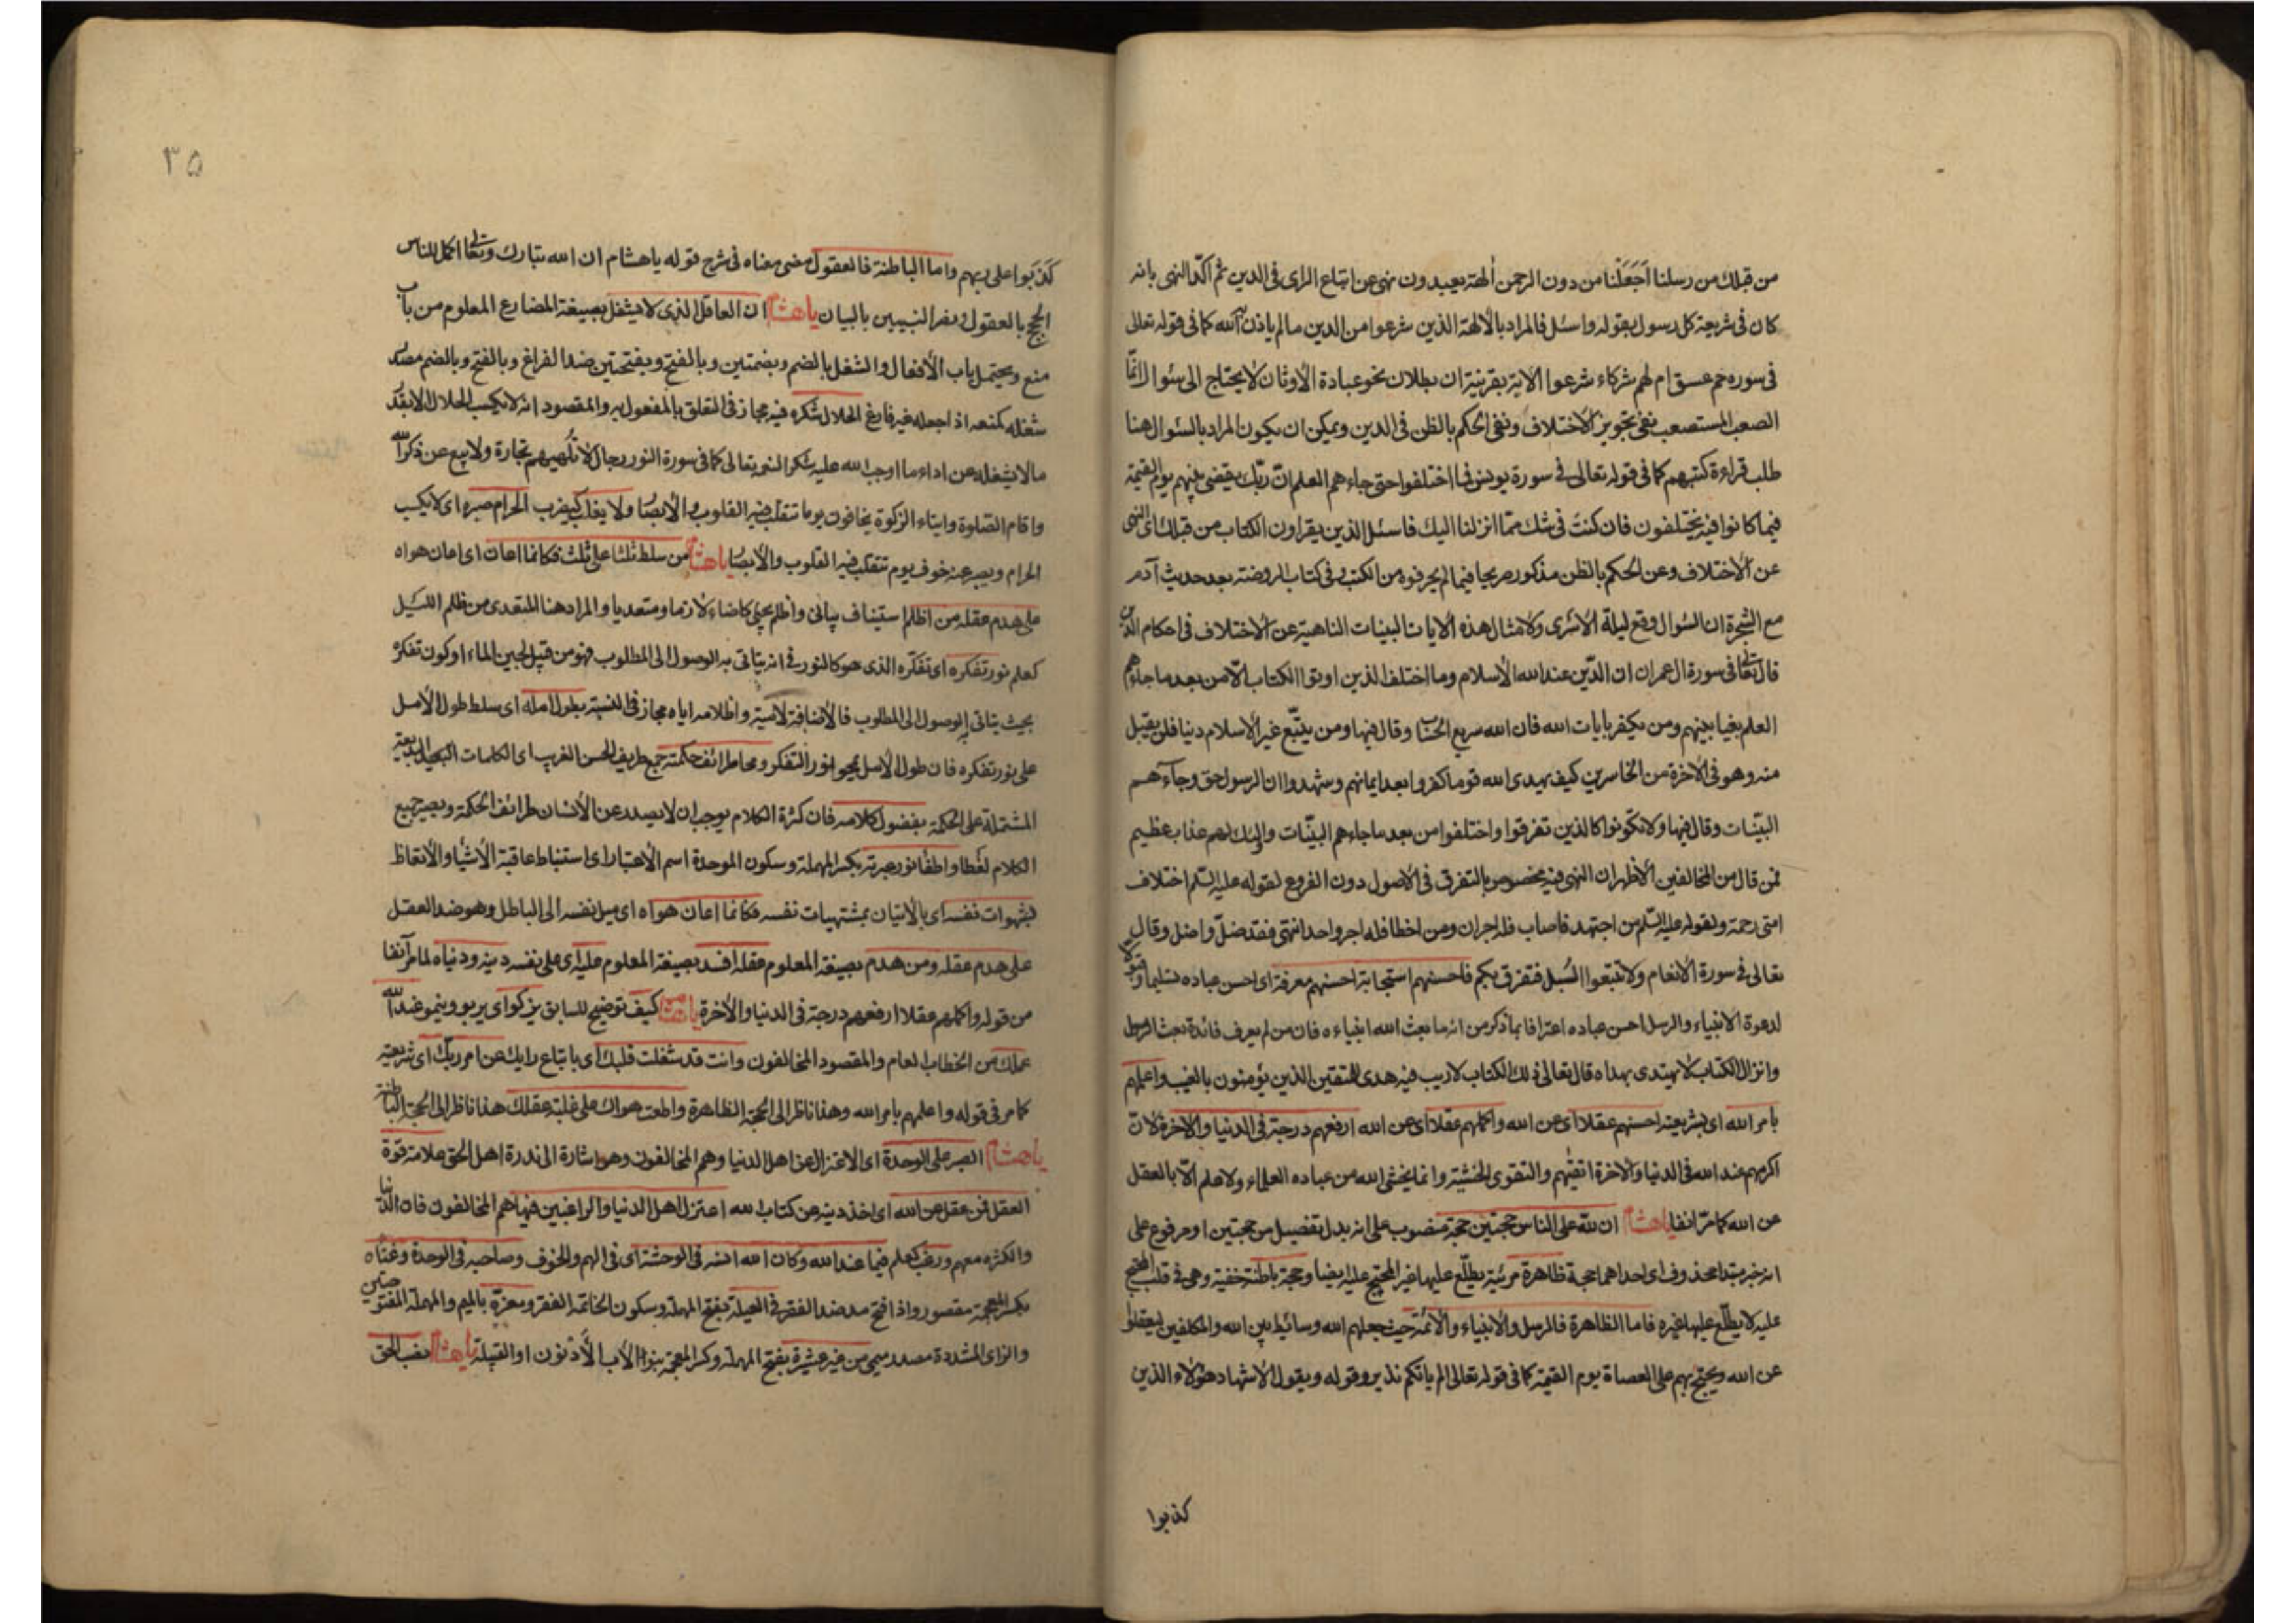 من قبلك من رسلنا اَجَعَلْنا من دون الرحمن اٰلهة يعبدون نهى عن اتباع الراى فى الدين ثم اكّد النهى بانه
كان فى شريعة كل رسول بقوله واسئل فالمراد بالالهة الذين شرعوا من الدين ما لم ياذن به الله كما فى قوله تعالى
فى سورة حم عسق ام لهم شركاء شرعوا الاية بقرينة ان بطلان نحو عبادة الاوثان لا يحتاج الى سئوال انّما
الصعب المستصعب نفى تجويز الاختلاف ونفى الحكم بالظن فى الدين ويمكن ان يكون المراد بالسئوال هنا
طلب قراءة كتبهم كما فى قوله تعالى فى سورة يونس فما اختلفوا حتى جاءهم العلم انّ ربّك يقضى بينهم يوم القيمة
فيما كانوا فيه يختلفون فان كنتَ فى شك ممّا انزلنا اليك فاسئل الذين يقراون الكتاب من قبلك اى النهى
عن الاختلاف وعن الحكم بالظن مذكور صريحا فيما لم يحرفوه من الكتب وفى كتاب الروضة بعد حديث آدم
مع الشجرة ان السّوال وقع ليلة الاسرى ولامثال هذه الايات البينات الناهية عن الاختلاف فى احكام الدين
قال تعالى فى سورة ال عمران ان الدّين عند الله الاسلام وما اختلف الذين اوتوا الكتاب الّا من بعد ما جاءهم
العلم بغيا بينهم ومن يكفر بايات الله فان الله سريع الحساب وقال فيها ومن يبتّغ غير الاسلام دينا فلن يقبل
منه وهو فى الاخرة من الخاسرين كيف يهدى الله قوما كفروا بعد ايمانهم وشهدوا ان الرسول حق وجاءهم
البيّنات وقال فيها ولا تكونوا كالذين تفرقوا واختلفوا من بعد ما جاءهم البيّنات واولئك لهم عذاب عظيم
فمن قال من المخالفين الاظهر ان النهى فيه مخصوص بالتفرق فى الاصول دون الفروع لقوله عليه السّلم اختلاف
امتى رحمة ولقوله عليه السّلم من اجتهد فاصاب فله اجران ومن اخطا فله اجر واحد انتهى فقد ضلّ واضل وقال
تعالى فى سورة الانعام ولا تتبعوا السُّبل فتفرق بكم فاحسنهم استجابة احسنهم معرفة اى احسن عباده تسليما وقبولا
لدعوة الانبياء والرسل احسن عباده اعترافا بما ذكر من انه ما بعث الله انبياءه فان من لم يعرف فائدة بعث الرسل
وانزال الكتاب لا يهتدى بهداه قال تعالى ذلك الكتاب لا ريب فيه هدى للمتقين الذين يؤمنون بالغيب واعلمهم
بامر الله اى بشريعته احسنهم عقلا اى عن الله واكملهم عقلا اى عن الله ارفعهم درجة فى الدنيا والاخرة لانّ
اكرمهم عند الله فى الدنيا والاخرة اتقيهم والتقوى الخشية وانما يخشى الله من عباده العلماء ولا علم الّا بالعقل
عن الله كما مرّ انفا يا هشام ان للّه على الناس حجتين حجة منصوب على انه بدل تفصيل من حجتين او مرفوع على
انه خبر مبتدا محذوف اى احداهما حجة ظاهرة مرئية يطّلع عليها غير المحتج عليه ايضا وحجة باطنة خفية وهى فى قلب المحتج
عليه لا يطّلع عليها غيره فاما الظاهرة فالرسل والانبياء والائمة حيث جعلهم الله وسائط بين الله والمكلفين ليعقلوا
عن الله ويحتج بهم على العصاة يوم القيمة كما فى قوله تعالى الم ياتكم نذير وقوله ويقول الاشهاد هؤلاء الذين
كذبوا
٣٥
كَذَبوا على ربهم واما الباطنة فالعقول مضى معناه فى شرح قوله يا هشام ان الله تبارك وتعالى اكمل للناس
الحجج بالعقول ونصر النبيين بالبيان يا هشام ان العاقل الذى لا يشغل بصيغة المضارع المعلوم من باب
منع ويحتمل باب الافعال والشغل بالضم وبضمتين وبالفتح وبفتحتين ضد الفراغ وبالفتح وبالضم مصدر
شغله كمنعه اذا جعله غير فارغ الحلال شكره فيه مجاز فى التعلق بالمفعول به والمقصود انه لا يكسب الحلال الا بقدر
ما لا يشغله عن اداء ما اوجب الله عليه شكرا لنعمه تعالى كما فى سورة النور رجال لا تلهيهم تجارة ولا بيع عن ذكر الله
واقام الصّلوة وايتاء الزكوة يخافون يوما تتقلب فيه القلوب والابصار ولا يغلب كيضرب الحرام صبره اى لا يكسب
الحرام ويصبر عنه خوف يوم تتقلب فيه القلوب والابصار يا هشام من سلط ثلثا على ثلث فكانما اعان اى اعان هواه
على هدم عقله من اظلم استيناف بيانى واظلم يجئ كاضاء لازما ومتعديا والمراد هنا المتعدى من ظلم الليل
كعلم نور تفكره اى تفكّره الذى هو كالنور فى انه يتاتى به الوصول الى المطلوب فهو من قبيل لجين الماء او كون تفكره
بحيث يتاتى به الوصول الى المطلوب فالاضافة لامية واظلامه اياه مجاز فى النسبة بطول امله اى سلط طول الامل
على نور تفكره فان طول الامل يمحو نور التفكر ومحا طرائف حكمته جمع طريف الحسن الغريب اى الكلمات البديعة
المشتملة على الحكمة بفضول كلامه فان كثرة الكلام يوجب ان لا يصدر عن الانسان طرائف الحكمة ويصير جميع
الكلام لغطا واطفا نور عبرته بكسر المهملة وسكون الموحدة اسم الاعتبار اى استنباط عاقبة الاشياء والاتعاظ
بشهوات نفسه اى بالاتيان بمشتهيات نفسه فكانما اعان هواه اى ميل نفسه الى الباطل وهو ضد العقل
على هدم عقله ومن هدم بصيغة المعلوم عقله افسد بصيغة المعلوم عليه اى على نفسه دينه ودنياه لما مر آنفا
من قوله واكملهم عقلا ارفعهم درجة فى الدنيا والاخرة يا هشام كيف توضيح للسابق يزكو اى يربو وينمو عند الله
عملك من الخطاب العام والمقصود المخالفون وانت قد شغلت قلبك اى باتباع رايك عن امر ربّك اى شريعته
كما مر فى قوله واعلمهم بامر الله وهذا ناظر الى الحجة الظاهرة واطعت هواك على غلبة عقلك هذا ناظر الى الحجة الباطنة
يا هشام الصبر على الوحدة اى الاعتزال عن اهل الدنيا وهم المخالفون وهو اشارة الى ندرة اهل الحق علامة قوّة
العقل فمن عقل عن الله اى اخذ دينه من كتاب الله اعتزل اهل الدنيا والراغبين فيها هم المخالفون فان الدنيا
والكثرة معهم ورغب كعلم فيما عند الله وكان الله انسه فى الوحشة اى فى الهم والخوف وصاحبه فى الوحدة وغناه
بكسر المعجمة مقصور واذا فتح مد ضد الفقر فى العيلة بفتح المهملة وسكون الخاتمة الفقر ومعزّه بالميم والمهملة المفتوحتين
والزاى المشددة مصدر ميمى من غير عشيرة بفتح المهملة وكسر المعجمة بنو الاب الادنون او القبيلة يا هشام نصب الحق